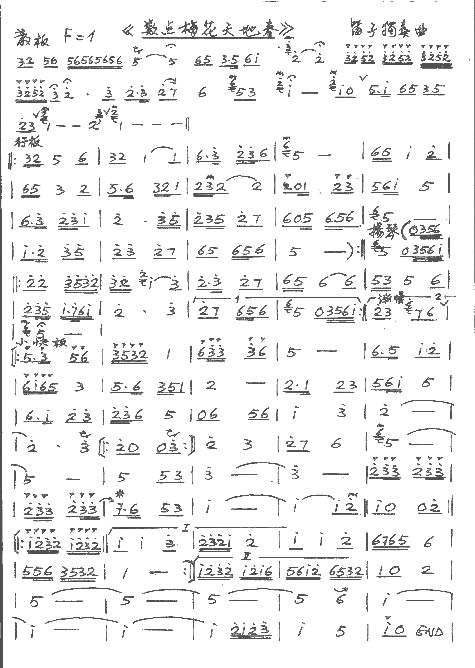 散板 F=1 《数点梅花天地春》 笛子独奏曲
32 56 56565656 5 5 65 3·5 6i 2 2 3232 3232 3232 3232
3232 3 2 · 3 2·3 27 6 53 i — i0 5·i 65 35
23 i — — 2 i — — —
行板
32 5 6 | 32 i i | 6·3 236 | 5 — | 65 i 2 |
65 3 2 | 5·6 321 | 232 2 | 201 23 | 561 5 |
6·3 231 | 2 · 35 | 235 27 | 605 656 | 5 — |
扬琴(0356
i·2 35 | 23 27 | 65 656 | 5 —) :| 5 0356i |
|: 22 3532 | 32 i 3 | 2·3 27 | 65 6 6 | 53 5 6 |
渐慢
235 i·76i | 2 · 3 | 27 656 | 5 0356i :| 23 76 |
5 —
小快板
|: 5·3 56 | 3532 1 | 633 36 | 5 — | 6·5 i2 |
6i65 3 | 5·6 351 | 2 — | 2·1 23 | 561 5 |
6·i 23 | 236 5 | 06 56 | i 3 | 2 — |
2 · 3 |: 20 03 :| 2 3 | 27 6 | 5 — |
5 — | 5 53 | 3 — | 3 — | 233 233 |
233 233 | 7·6 53 | i — | i i2 | i0 02 ||
I
|: i232 i232 | i i 3 | 232i 2 | i i 2 | 6765 6 |
II
556 3532 | 1 — :| i232 i2i6 | 56i2 6532 | 10 2 |
5 — | 5 — | 5 — | 5 6 | i — |
i — | i — | i 2i23 | i 5 | i0 END ||